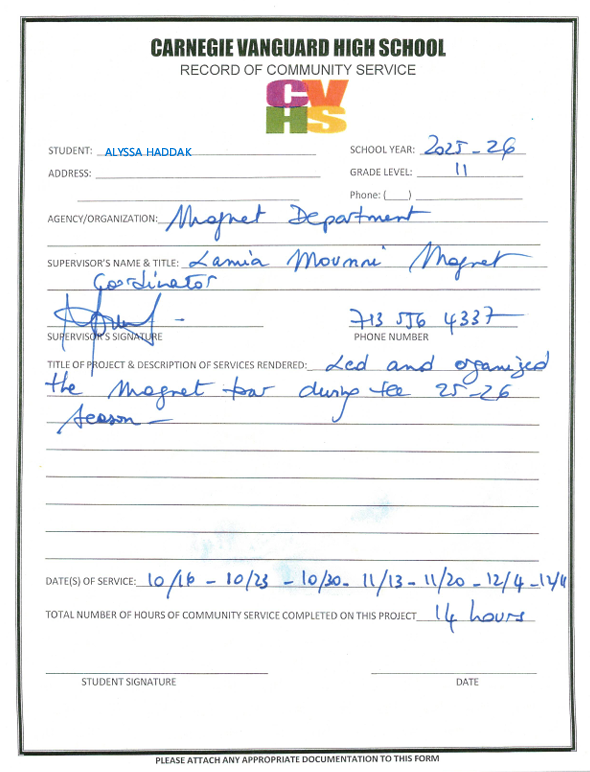 CARNEGIE VANGUARD HIGH SCHOOL
RECORD OF COMMUNITY SERVICE
CV
HS
STUDENT: ALYSSA HADDAK SCHOOL YEAR: 2025-26
ADDRESS: GRADE LEVEL: 11
Phone: ( )
AGENCY/ORGANIZATION: Magnet Department
SUPERVISOR'S NAME & TITLE: Lamia Mounni Magnet
Coordinator
713 556 4337
SUPERVISOR'S SIGNATURE PHONE NUMBER
TITLE OF PROJECT & DESCRIPTION OF SERVICES RENDERED: Led and organized
the Magnet during 25-26
season
DATE(S) OF SERVICE: 10/16 - 10/23 - 10/30 - 11/13 - 11/20 - 12/4 -
TOTAL NUMBER OF HOURS OF COMMUNITY SERVICE COMPLETED ON THIS PROJECT 14 hours
STUDENT SIGNATURE DATE
PLEASE ATTACH ANY APPROPRIATE DOCUMENTATION TO THIS FORM